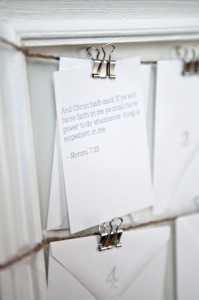 And Christ hath said: If ye will
have faith in me ye shall have
power to do whatsoever thing is
expedient in me.
- Moroni 7:33
2
4